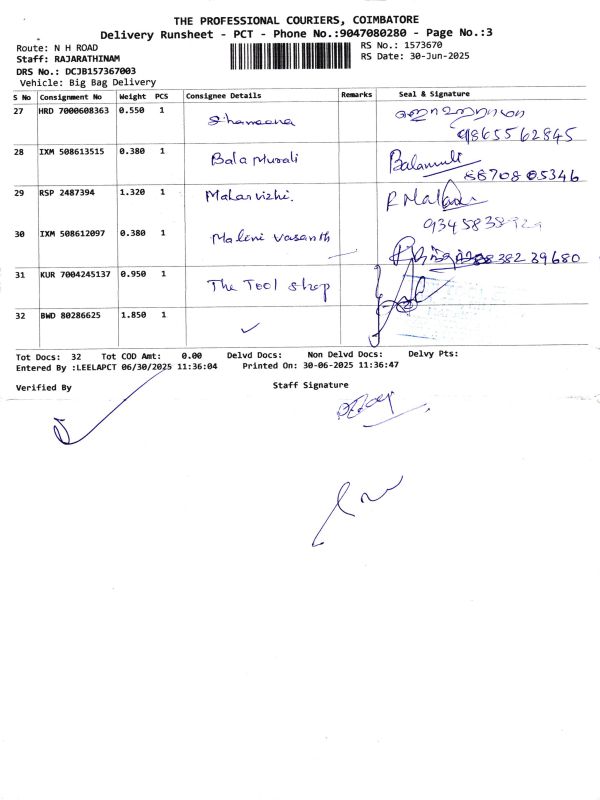 THE PROFESSIONAL COURIERS, COIMBATORE
Delivery Runsheet - PCT - Phone No.:9047080280 - Page No.:3
Route: N H ROAD
RS No.: 1573670
Staff: RAJARATHINAM
RS Date: 30-Jun-2025
DRS No.: DCJB157367003
Vehicle: Big Bag Delivery
S No Consignment No Weight PCS Consignee Details Remarks Seal & Signature
27 HRD 7000608363 0.550 1
9865562845
28 IXM 508613515 0.380 1 Bala Murali Balamurali
8870805346
29 RSP 2487394 1.320 1 Malarvizhi.
30 IXM 508612097 0.380 1 Malini Vasanth
31 KUR 7004245137 0.950 1 The Tool Shop
32 BWD 80286625 1.850 1
Tot Docs: 32 Tot COD Amt: 0.00 Delvd Docs: Non Delvd Docs: Delvy Pts:
Entered By :LEELAPCT 06/30/2025 11:36:04 Printed On: 30-06-2025 11:36:47
Verified By Staff Signature